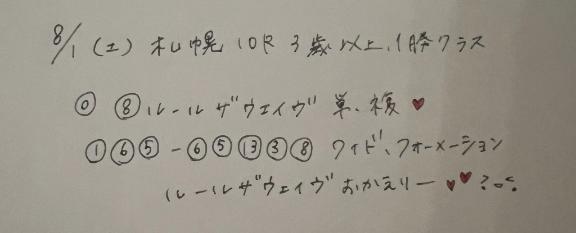 8/1 (土) 札幌 10R 3歳以上、1勝クラス
◎ ⑧ルールザウェイヴ 単、複♥
①⑥⑤-⑥⑤⑬③⑧ ワイド、フォーメーション
ルールザウェイヴおかえりー♥♥